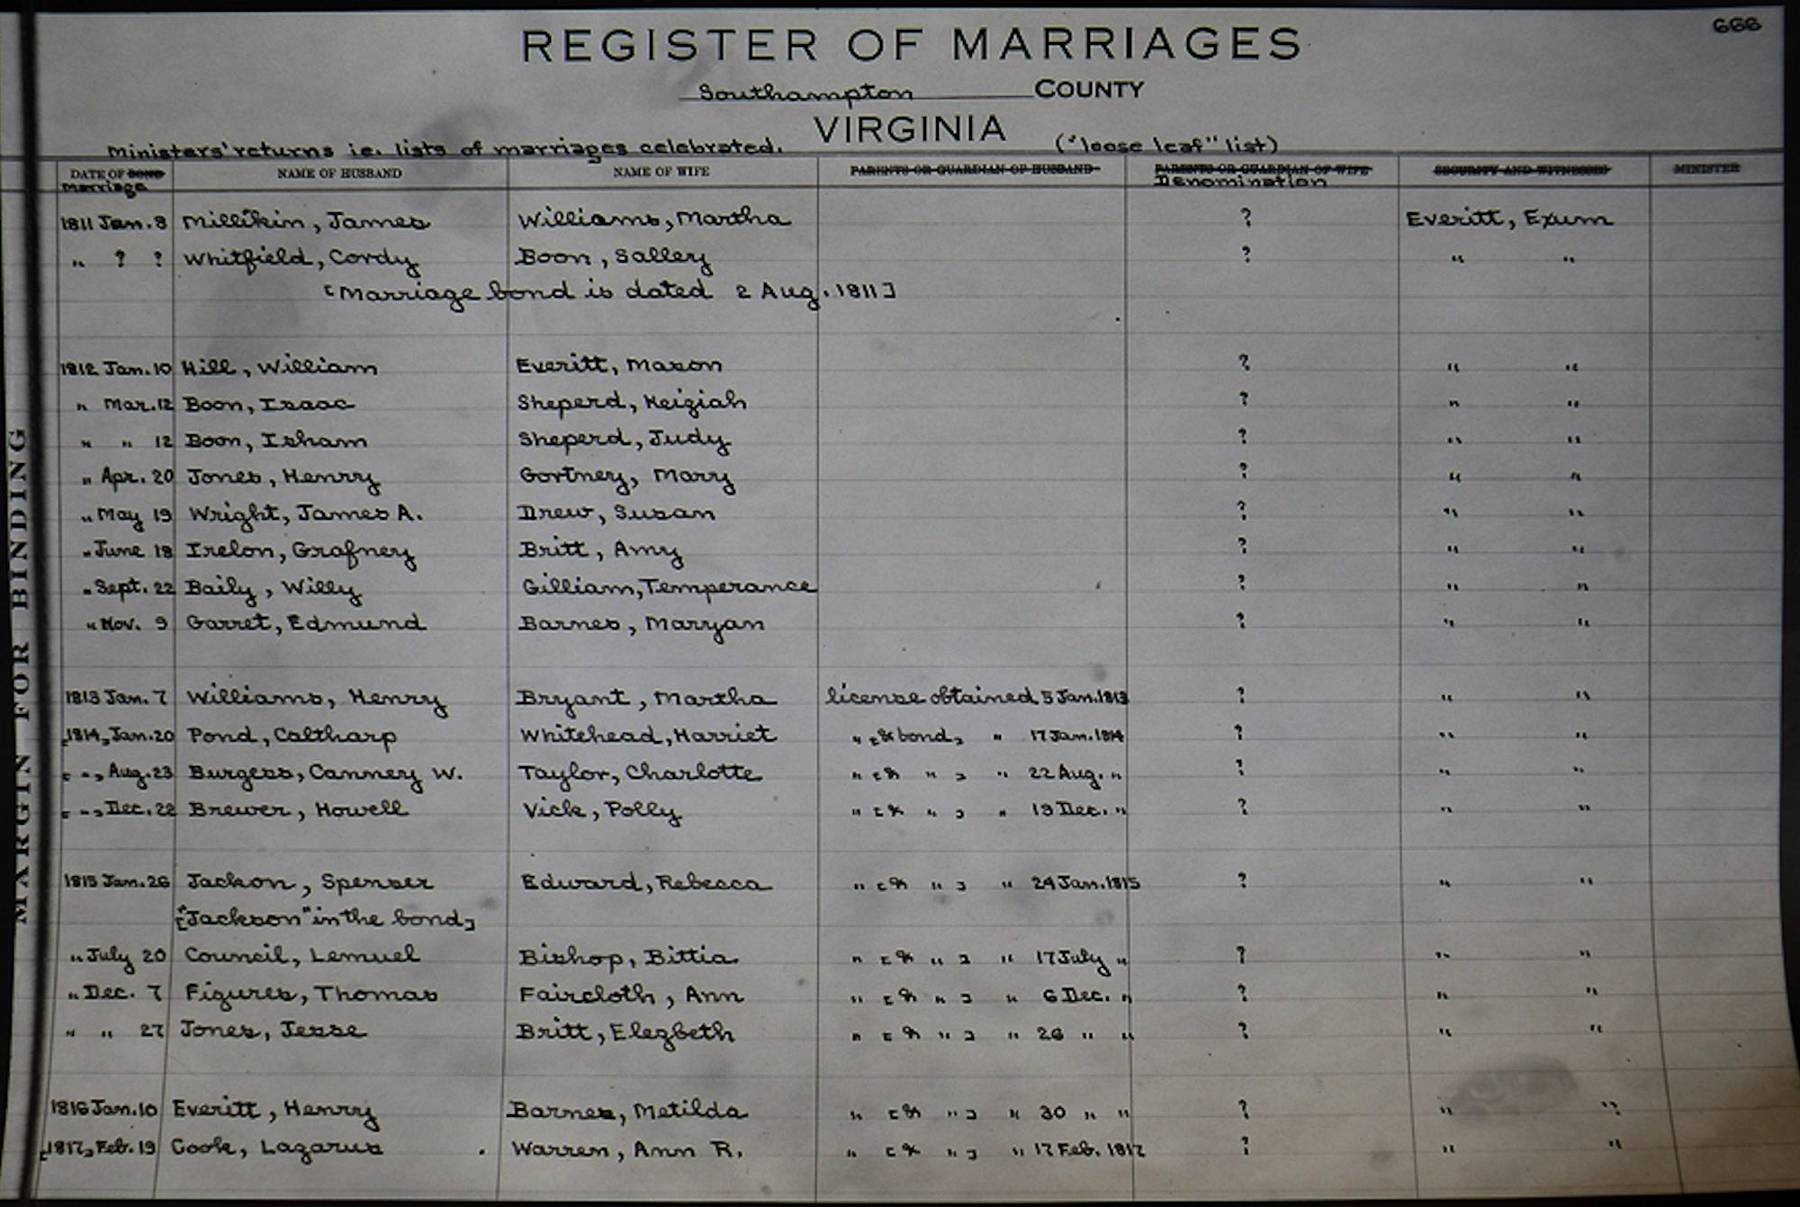 666
REGISTER OF MARRIAGES
Southampton COUNTY
VIRGINIA
Ministers' returns i.e. lists of marriages celebrated. ("loose leaf" list)
DATE OF BOND NAME OF HUSBAND NAME OF WIFE PARENTS OR GUARDIAN OF HUSBAND PARENTS OR GUARDIAN OF WIFE SECURITY AND WITNESSES MINISTER
Marriage Denomination
1811 Jan. 8 Millikin, James Williams, Martha ? Everitt, Exum
" ? ? Whitfield, Cordy Boon, Salley ? " "
[Marriage bond is dated 2 Aug. 1811]
1812 Jan. 10 Hill, William Everitt, Mason ? " "
" Mar. 12 Boon, Isaac Sheperd, Keiziah ? " "
" " 12 Boon, Isham Sheperd, Judy ? " "
" Apr. 20 Jones, Henry Gortney, Mary ? " "
" May 19 Wright, James A. Drew, Susan ? " "
" June 18 Irelon, Grafney Britt, Amy ? " "
" Sept. 22 Baily, Willy Gilliam, Temperance ? " "
" Nov. 9 Garret, Edmund Barnes, Maryan ? " "
1813 Jan. 7 Williams, Henry Bryant, Martha license obtained 5 Jan. 1813 ? " "
[1814] Jan. 20 Pond, Caltharp Whitehead, Harriet " [& bond] " 17 Jan. 1814 ? " "
[ " ] Aug. 23 Burgess, Canney W. Taylor, Charlotte " [& " ] " 22 Aug. " ? " "
[ " ] Dec. 22 Brewer, Howell Vick, Polly " [& " ] " 19 Dec. " ? " "
1815 Jan. 26 Jackon, Spenser Edward, Rebecca " [& " ] " 24 Jan. 1815 ? " "
["Jackson" in the bond]
" July 20 Council, Lemuel Bishop, Bittia. " [& " ] " 17 July " ? " "
" Dec. 7 Figures, Thomas Faircloth, Ann " [& " ] " 6 Dec. " ? " "
" " 27 Jones, Jesse Britt, Elezbeth " [& " ] " 26 " " ? " "
1816 Jan. 10 Everitt, Henry Barnes, Metilda " [& " ] " 30 " " ? " "
[1817] Feb. 19 Cook, Lazarus Warren, Ann R. " [& " ] " 17 Feb. 1817 ? " "
MARGIN FOR BINDING